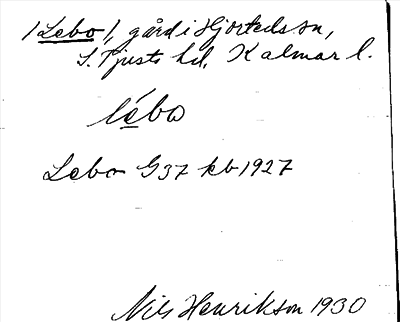 /Lebo/, gård i Hjorteds sn,
S. Tjusts hd, Kalmar l.
lébo
Lebo G37 kb 1927
Nils Henrikson 1930